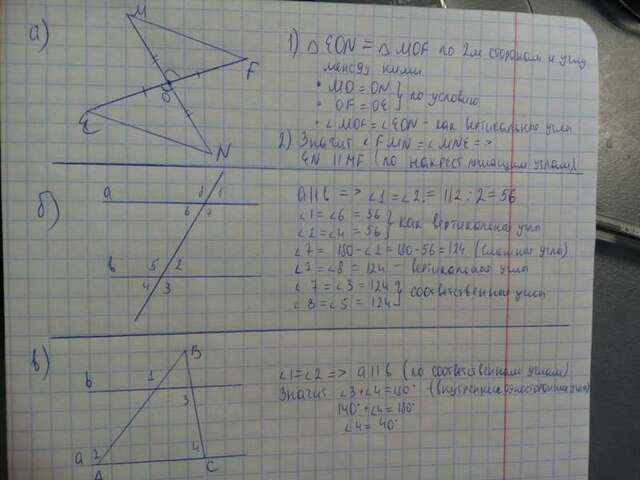 а)
M
F
O
E
N
1) △ EON = △ MOF по 2м сторонам и углу
между ними
• MO = ON } по условию
• OF = OE
• ∠MOF = ∠EON - как вертикальные углы
2) Значит ∠FMN = ∠MNE =>
EN || MF (по накрест лежащим углам)
б)
a
8 1
6 7
b
5 2
4 3
a||b => ∠1 = ∠2 = 112 : 2 = 56
∠1 = ∠6 = 56 } как вертикальные углы
∠2 = ∠4 = 56
∠7 = 180 - ∠1 = 180 - 56 = 124 (смежные углы)
∠7 = ∠8 = 124 - вертикальные углы
∠7 = ∠3 = 124 } соответственные углы
∠8 = ∠5 = 124
в)
B
b
1
3
a 2
4
A
C
∠1 = ∠2 => a||b (по соответственным углам)
Значит ∠3 + ∠4 = 180° (внутренние односторонние углы)
140° + ∠4 = 180°
∠4 = 40°